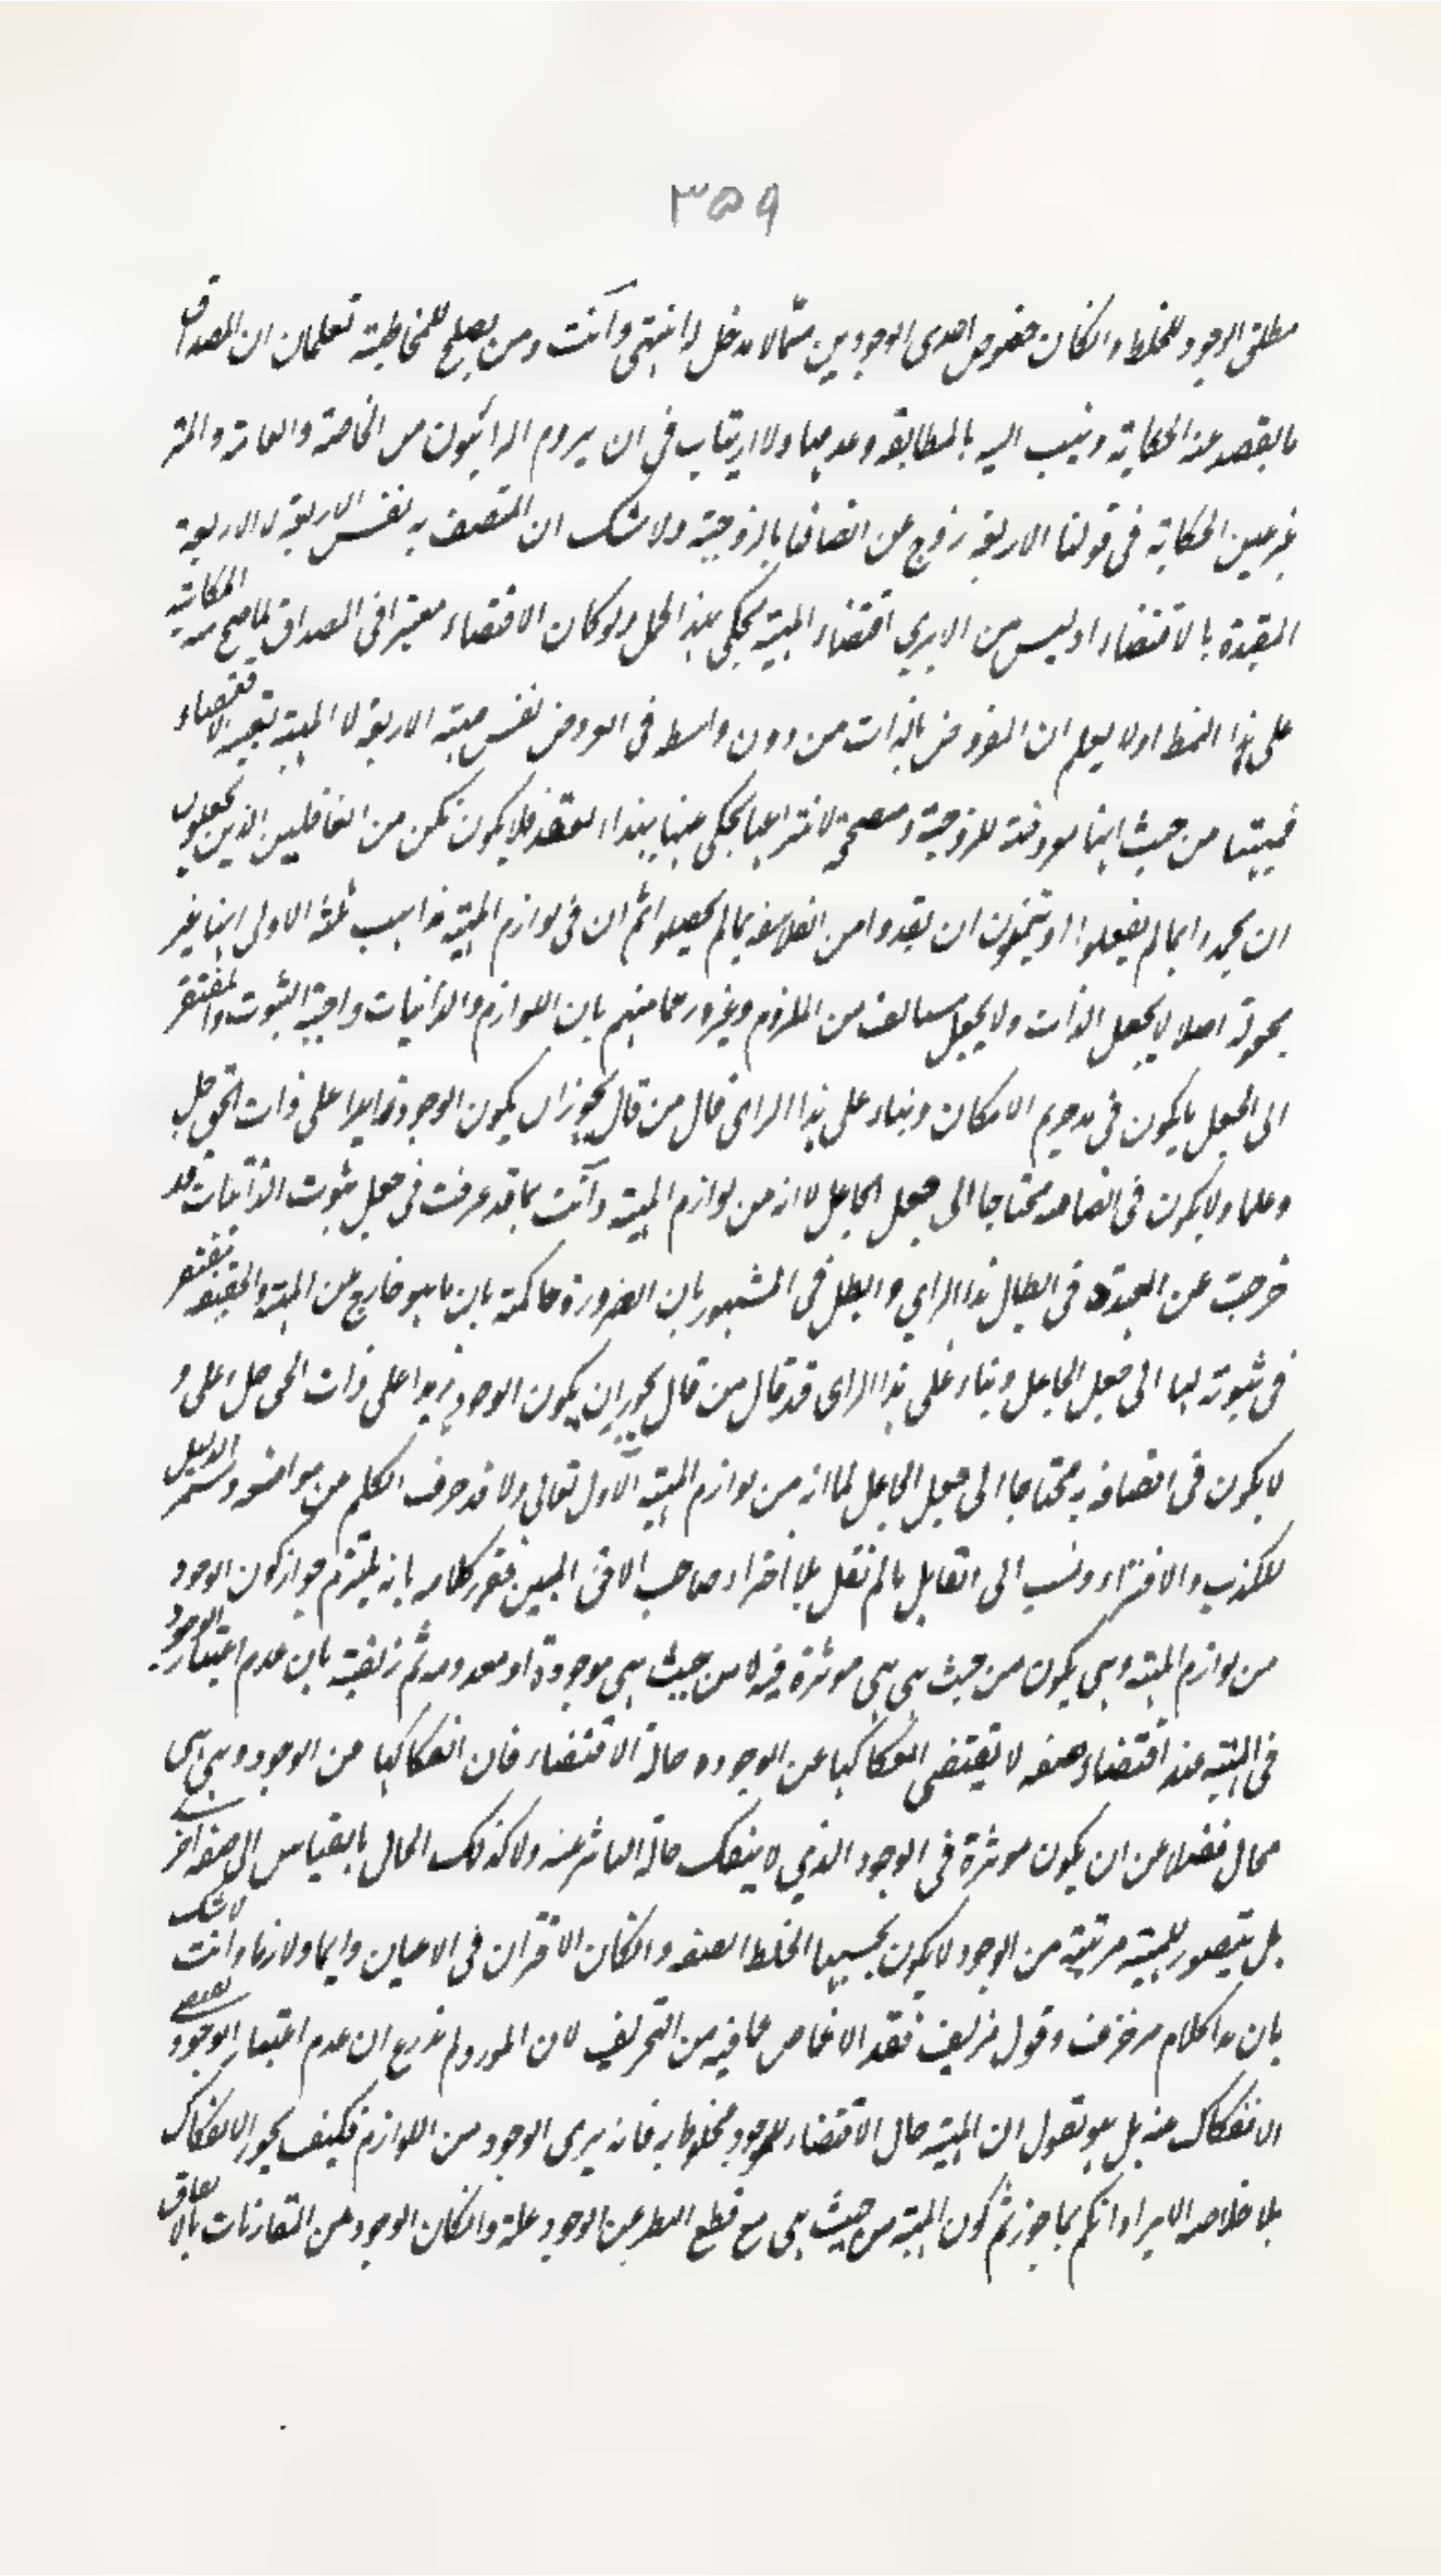 ٣٥٩
مطلق الوجود للخلط وان كان خصوص احدى الوجودين مما لا مدخل له انتهى وانت ومن يصلح للمخاطبة تعلمان ان المصداق
ما يقصد عنه الحكاية وينسب اليه بالمطابقة وعدمها ولا ارتياب فى ان يروم من الخاصة والعامة
غير معين الحكاية فى قولنا الاربعة زوج عن اتصافها بالزوجية ولا شك ان المتصف به نفس الاربعة لا الاربعة
المقيدة بالاقتضاء اوليس من الابدي اقتضاء المهية يحكى بهذا الحمل ولو كان الاقتضاء معتبرا فى المصداق لما صح الحكاية
على هذا النمط اولا يعلم ان المعروض بالذات من دون واسطه فى العروض نفس مهية الاربعة لا المهية بقيد الاقتضاء
فمهيتها من حيث انها معروضة للزوجية ومصححة لانتزاعها يحكى عنها بهذا العقد فلا يكون من الغافلين الذين يحبون
ان يحمدوا بما لم يفعلوا او يتمنون ان يعدوا من الفلاسفه بما لم يحصلوا ثم ان فى لوازم المهية مذاهب ثلثة الاولى انها غير
مجعولة اصلا لا بجعل الذات ولا بجعل مستانف من الملزوم وغيره زعما منهم بان اللوازم والذاتيات واجبة الثبوت والمفتقر
الى الجعل ما يكون فى الامكان وبناء على هذا الراى قال من قال يجوز ان يكون الوجود زايدا على ذات الحق جل
وعلا ولا يكون فى اتصافه محتاجا الى جعل الجاعل لانه من لوازم المهية وانت بما قد عرفت فى جعل ثبوت الذاتيات قد
خرجت عن العهدة فى ابطال هذا الراي وابطل فى المشهور بان الضرورة حاكمة بان ما هو خارج عن المهية والحقيقة مفتقر
فى ثبوته لها الى جعل الجاعل وبناء على هذا الراى قد قال من قال يجوز ان يكون الوجود زايدا على ذات الحق جل وعلى و
لا يكون فى اتصافه به محتاجا الى جعل الجاعل لما انه من لوازم المهية الاول تعالى ولا قد حرف الكلم عن مواضعه
للكذب والافتراء ونسب الى القايل ما لم يقل بلا افتراء صاحب الافق المبين فقرر كلامه بانه يلتزم جواز كون الوجود
من لوازم المهية وهي يكون من حيث هى هى موثرة فيه لا من حيث هى موجودة او معدومه ثم زيفه بان عدم اعتبار الوجود
فى المهية عند اقتضاء صفه لا يقتضى انفكاكها عن الوجود حالة الاقتضاء فان انفكاكها من الوجود وهى هى
محال فضلا عن ان يكون موثرة فى الوجود الذي لا ينفك حالة التاثير عنه ولا كذلك الحال بالقياس الى صفة اخرى
بل يتصور للمهية مرتبة من الوجود لا يكون بحسبها الخلط الصفه وان كان الاقتران فى الاعيان دايما ولازما وانت لا شك
بان هذا كلام مزخرف وقول مزيف فقد الاغماض عما فيه من التحريف لان المورد لم يدع ان عدم اعتبار الوجود يقتضي
الانفكاك عنه بل هو يقول ان المهية حال الاقتضاء للوجود مخلوط به فانه يرى الوجود من اللوازم فكيف يجوز الانفكاك
بلا خلاصه الايراد انكم بما جوزتم كون المهية من حيث هى مع قطع النظر عن الوجود علة وان كان الوجود من المقارنات بالاتفاق